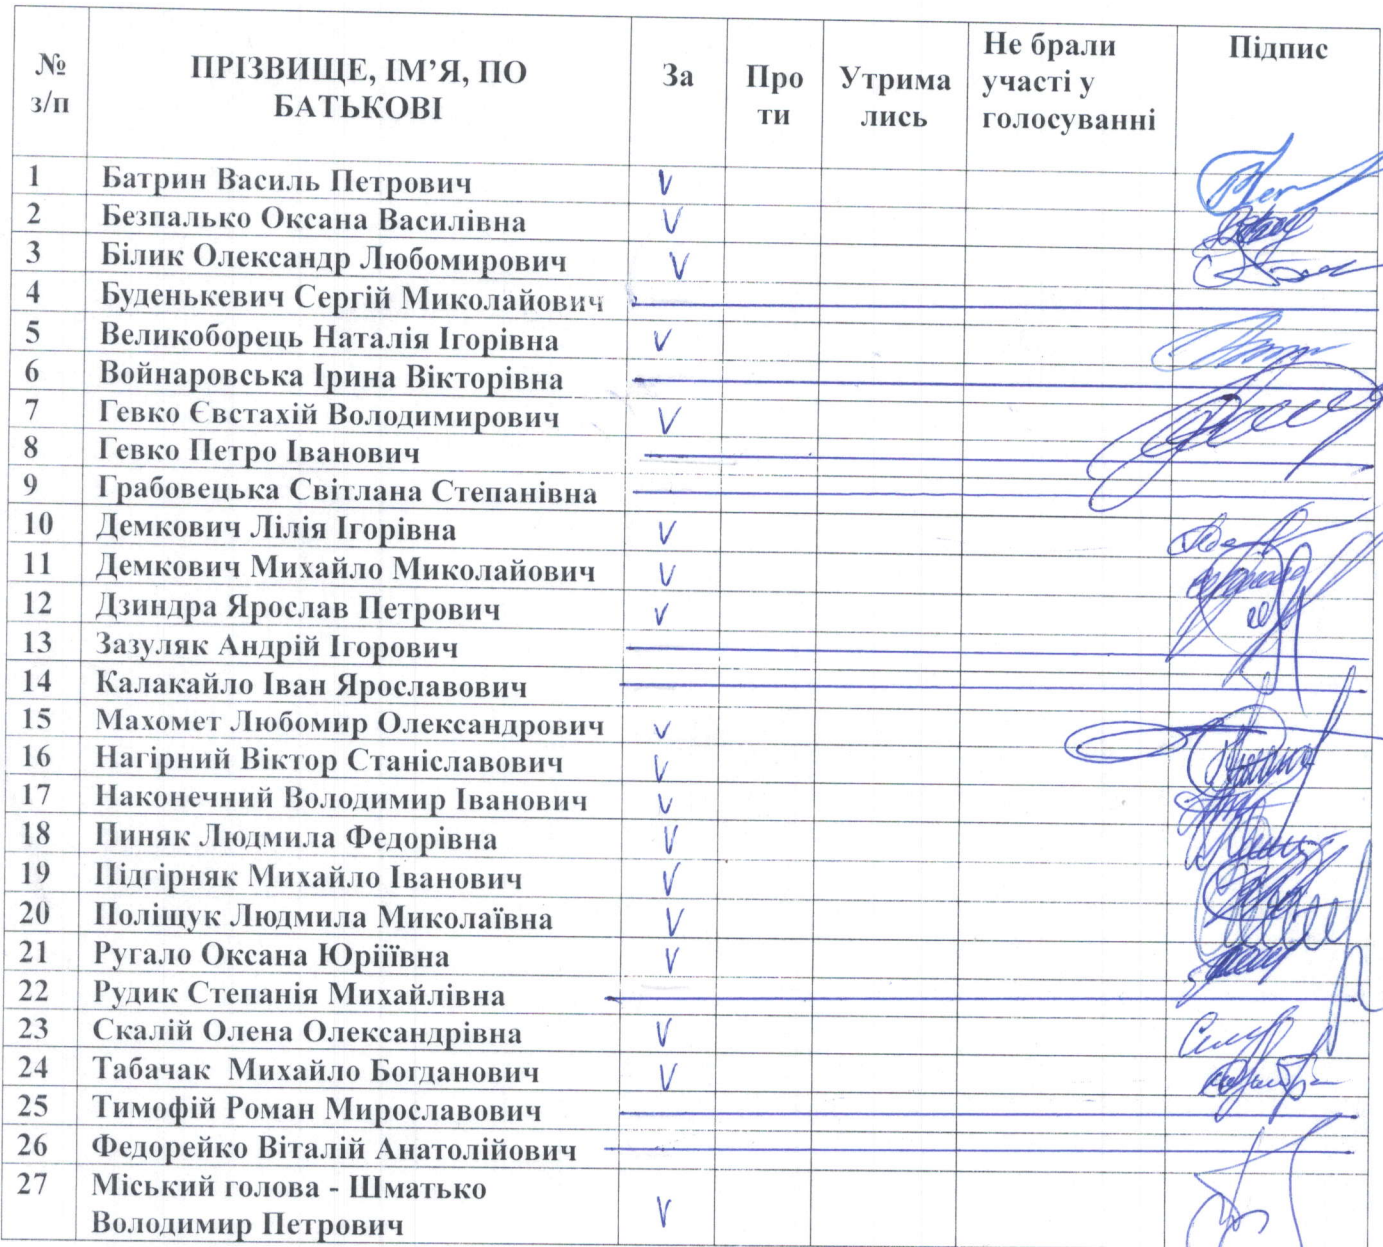 № з/п
ПРІЗВИЩЕ, ІМ’Я, ПО БАТЬКОВІ
За
Про ти
Утрима лись
Не брали участі у голосуванні
Підпис
1 Батрин Василь Петрович V
2 Безпалько Оксана Василівна V
3 Білик Олександр Любомирович V
4 Буденькевич Сергій Миколайович
5 Великоборець Наталія Ігорівна V
6 Войнаровська Ірина Вікторівна
7 Гевко Євстахій Володимирович V
8 Гевко Петро Іванович
9 Грабовецька Світлана Степанівна
10 Демкович Лілія Ігорівна V
11 Демкович Михайло Миколайович V
12 Дзиндра Ярослав Петрович V
13 Зазуляк Андрій Ігорович
14 Калакайло Іван Ярославович
15 Махомет Любомир Олександрович V
16 Нагірний Віктор Станіславович V
17 Наконечний Володимир Іванович V
18 Пиняк Людмила Федорівна V
19 Підгірняк Михайло Іванович V
20 Поліщук Людмила Миколаївна V
21 Ругало Оксана Юріїївна V
22 Рудик Степанія Михайлівна
23 Скалій Олена Олександрівна V
24 Табачак Михайло Богданович V
25 Тимофій Роман Мирославович
26 Федорейко Віталій Анатолійович
27 Міський голова - Шматько
Володимир Петрович V